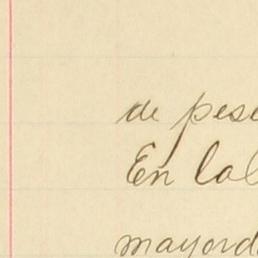 de pese
En lal
mayord